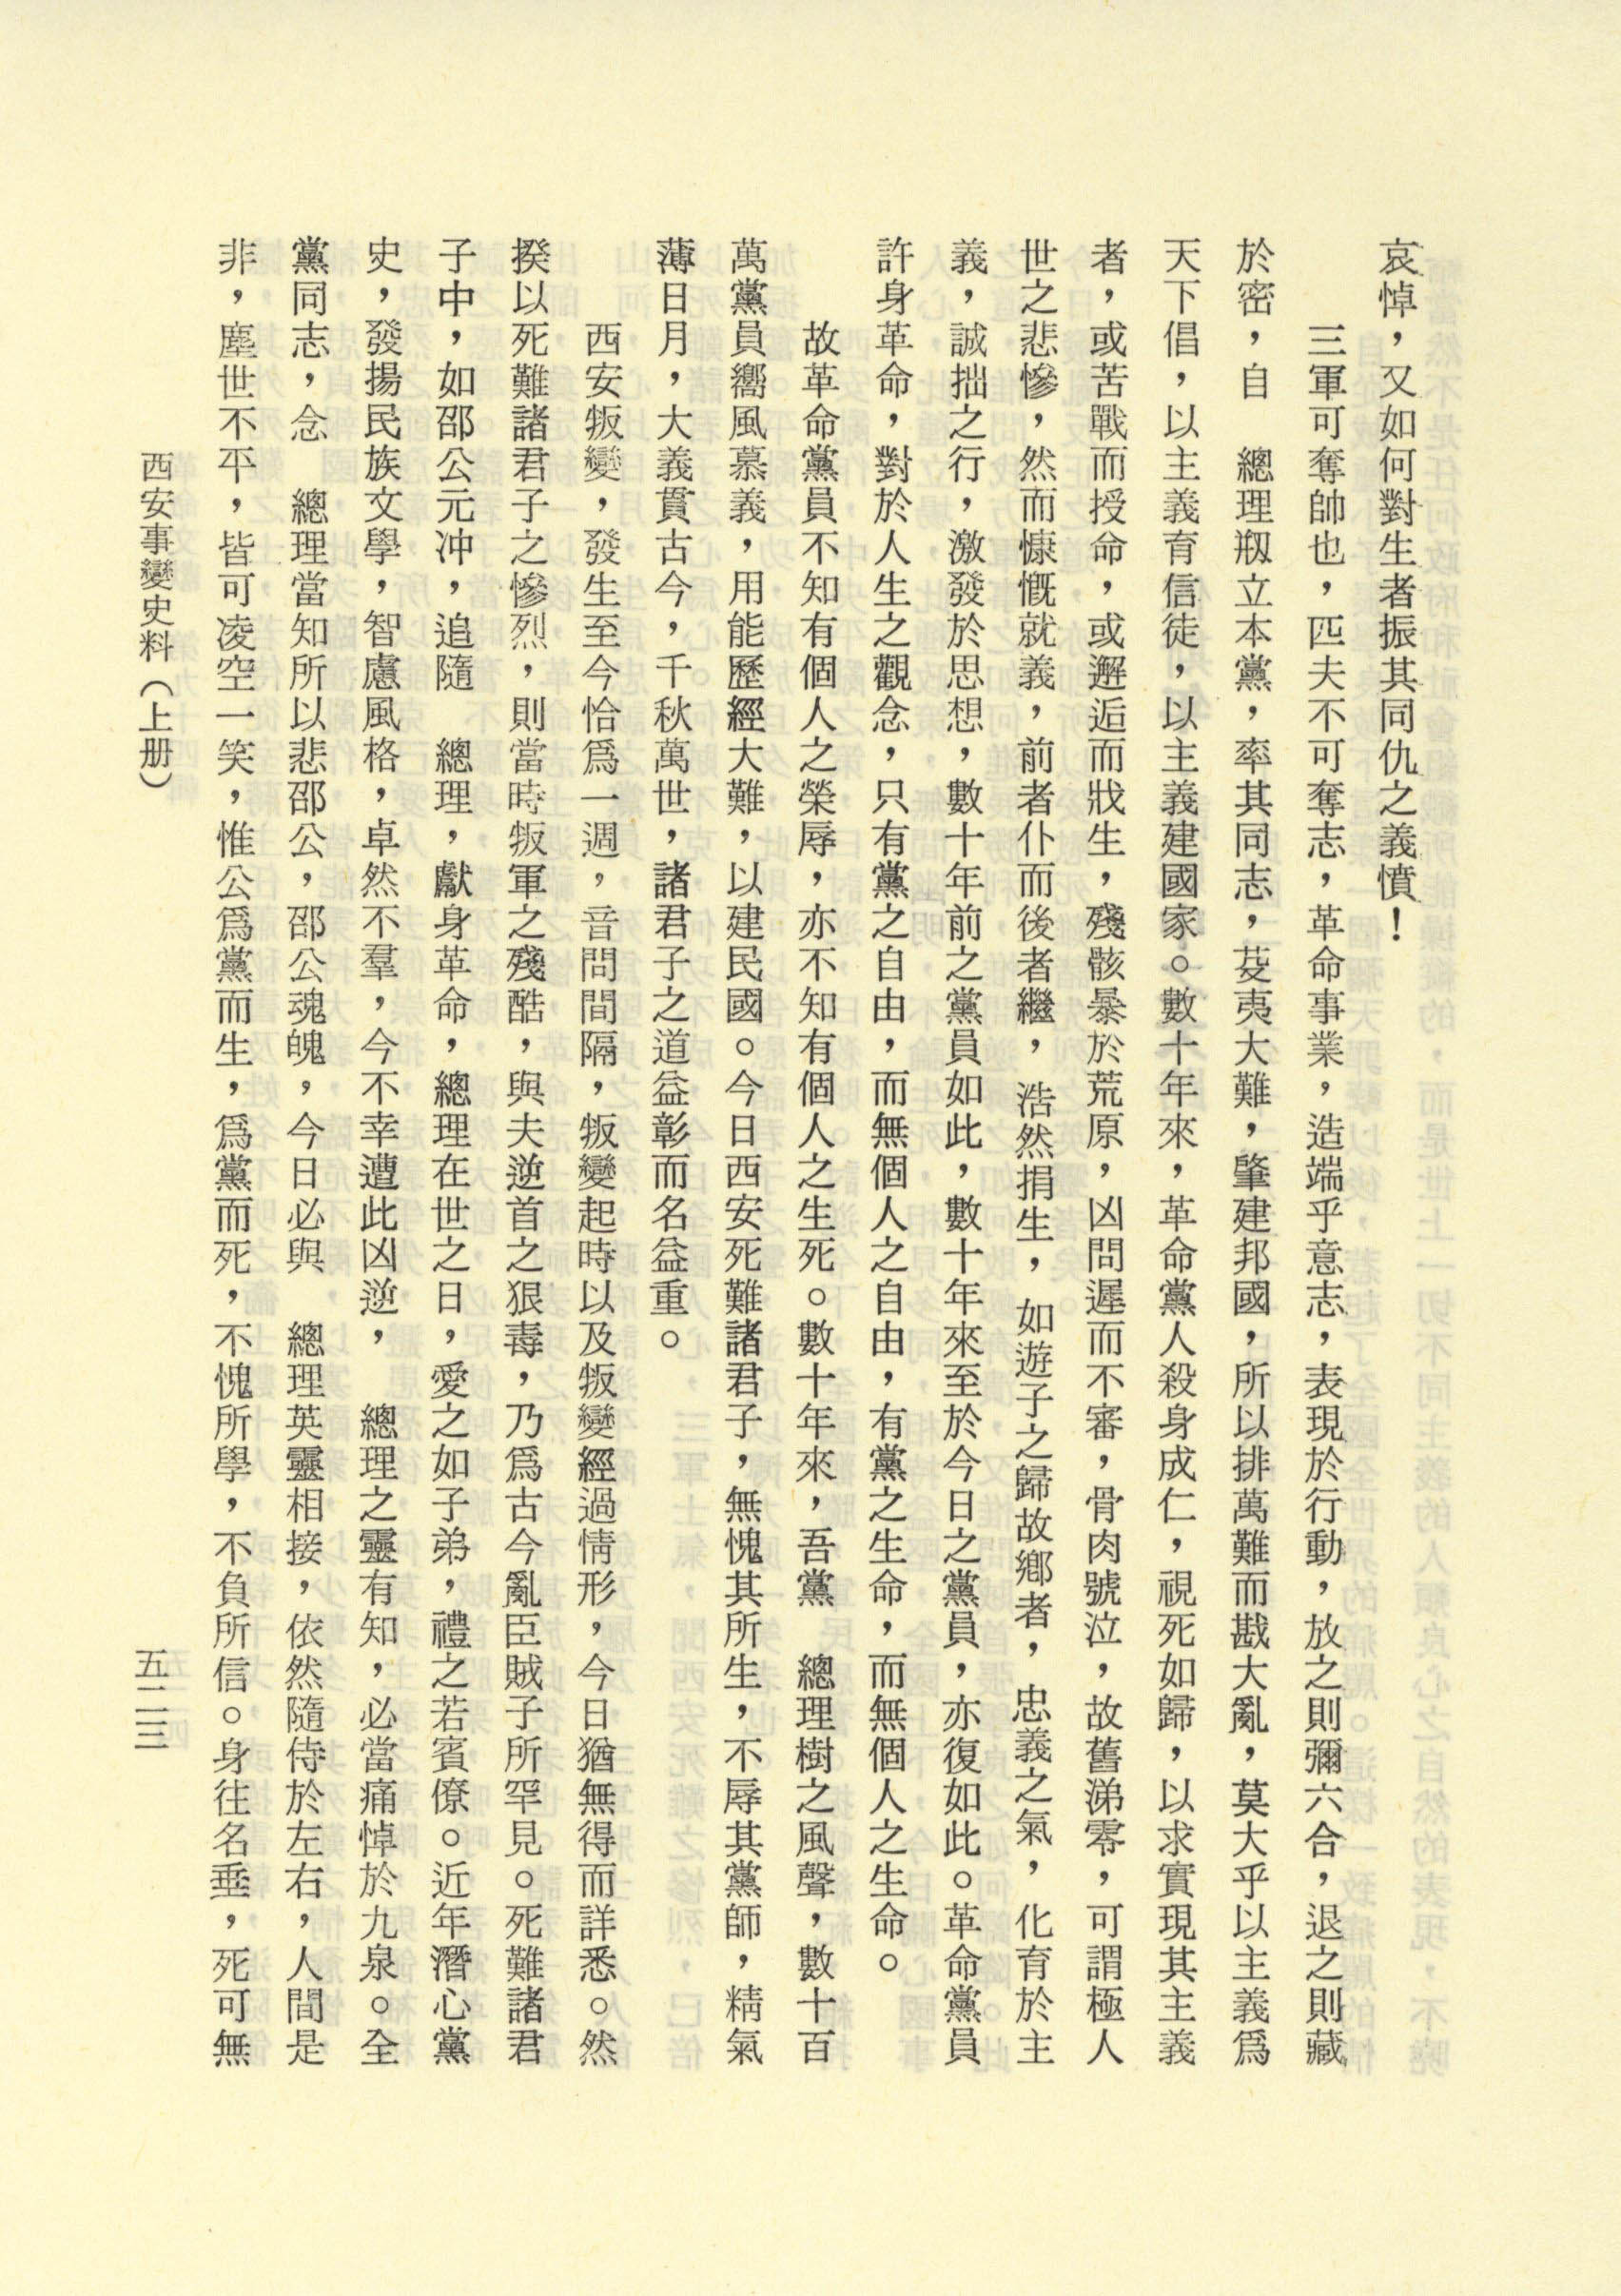 哀悼，又如何對生者振其同仇之義憤！
三軍可奪帥也，匹夫不可奪志，革命事業，造端乎意志，表現於行動，放之則彌六合，退之則藏
於密，自　總理刱立本黨，率其同志，芟夷大難，肇建邦國，所以排萬難而戡大亂，莫大乎以主義爲
天下倡，以主義育信徒，以主義建國家。數十年來，革命黨人殺身成仁，視死如歸，以求實現其主義
者，或苦戰而授命，或邂逅而戕生，殘骸暴於荒原，凶問遲而不審，骨肉號泣，故舊涕零，可謂極人
世之悲慘，然而慷慨就義，前者仆而後者繼，浩然捐生，如遊子之歸故鄉者，忠義之氣，化育於主
義，誠拙之行，激發於思想，數十年前之黨員如此，數十年來至於今日之黨員，亦復如此。革命黨員
許身革命，對於人生之觀念，只有黨之自由，而無個人之自由，有黨之生命，而無個人之生命。
故革命黨員不知有個人之榮辱，亦不知有個人之生死。數十年來，吾黨　總理樹之風聲，數十百
萬黨員嚮風慕義，用能歷經大難，以建民國。今日西安死難諸君子，無愧其所生，不辱其黨師，精氣
薄日月，大義貫古今，千秋萬世，諸君子之道益彰而名益重。
西安叛變，發生至今恰爲一週，音問間隔，叛變起時以及叛變經過情形，今日猶無得而詳悉。然
揆以死難諸君子之慘烈，則當時叛軍之殘酷，與夫逆首之狠毒，乃爲古今亂臣賊子所罕見。死難諸君
子中，如邵公元冲，追隨　總理，獻身革命，總理在世之日，愛之如子弟，禮之若賓僚。近年潛心黨
史，發揚民族文學，智慮風格，卓然不羣，今不幸遭此凶逆，　總理之靈有知，必當痛悼於九泉。全
黨同志，念　總理當知所以悲邵公，邵公魂魄，今日必與　總理英靈相接，依然隨侍於左右，人間是
非，塵世不平，皆可凌空一笑，惟公爲黨而生，爲黨而死，不愧所學，不負所信。身往名垂，死可無
西安事變史料（上册）
五二三